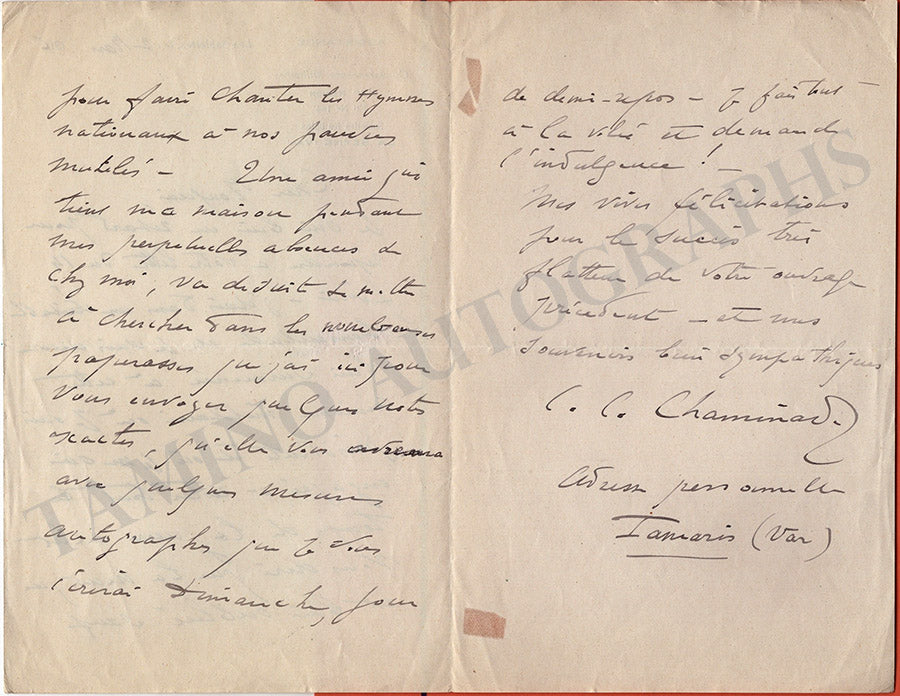 pour faire chanter les Hymnes
nationaux à nos pauvres
mutilés — Une amie qui
tient ma maison pendant
mes perpétuelles absences de
chez moi, va de suite se mettre
à chercher dans les nombreuses
paperasses que j'ai ici pour
vous envoyer quelques notes
exactes, qu'elle vous adressera
avec quelques mesures
autographes que je vous
écrirai Dimanche, jour
de demi-repos — Je fais tout
à la volée et demande
l'indulgence! —
Mes vives félicitations
pour le succès très
flatteur de votre ouvrage
précédent — et mes
souvenirs bien sympathiques
C. C. Chaminade
Adresse personnelle
Tamaris (Var)
TAMINO AUTOGRAPHS